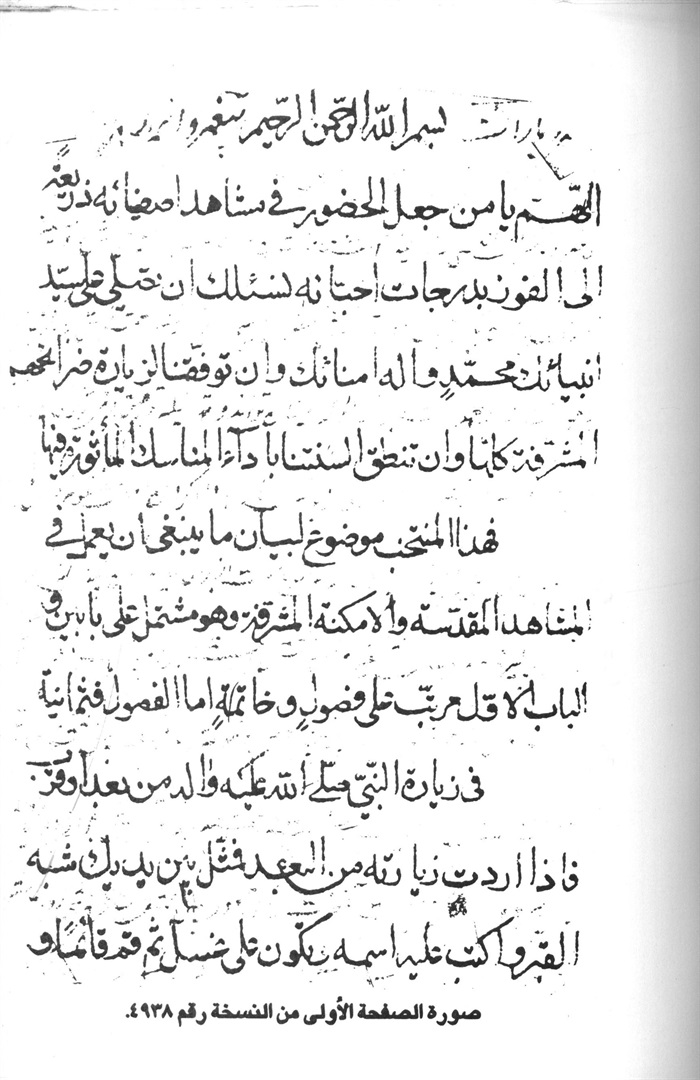 بسم الله الرحمن الرحيم
اللهم يا من جعل الحضور في مشاهد اصفيائه ذريعة
الى الفوز بدرجات احبائه نسئلك ان تصلي على سيد
انبيائك محمد وآله امنائك وان توفقنا لزيارة ضرائحهم
المشرفة كلها وان تنطق السنتنا بأدآء المناسك المأثورة فيها
فهذا المنتخب موضوع لبيان ما ينبغي أن يعمل في
المشاهد المقدسة والامكنة المشرفة وهو مشتمل على بابين و
الباب الاول مرتب على فصول وخاتمة اما الفصول فثمانية
في زيارة النبي صلى الله عليه وآله من بعد او قرب
فاذا اردت زيارته من البعد فمثل بين يديك شبه
القبر واكتب عليه اسمه وتكون على غسل ثم قم قائما و
صورة الصفحة الأولى من النسخة رقم ٤٩٣٨.